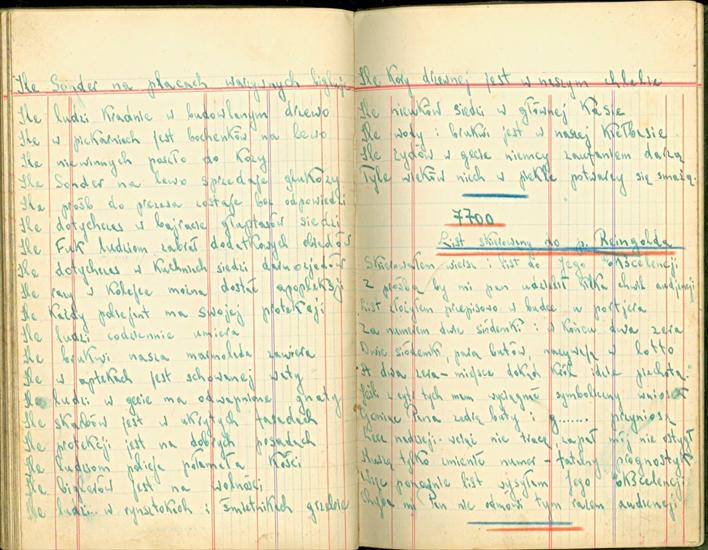 Ile Sonder na placach warzywnych
Ile ludzi kradnie w budowlanym drzewo
Ile w piekarniach jest bochenków na lewo
Ile niewinnych poszło do kozy
Ile Sonder na lewo sprzedaje glukozy
Ile próśb do prezesa zostaje bez odpowiedzi
Ile dotychczas w bajracie siedzi
Ile Fuk ludziom zabrał dodatkowych obiadów
Ile dotychczas w kuchniach siedzi darmozjadów
Ile razy w kolejce można dostać apopleksji
Ile każdy policjant ma swojej protekcji
Ile ludzi codziennie umiera
Ile brukwi nasza marmolada zawiera
Ile w aptekach jest schowanej waty
Ile ludzi w gecie ma odwapnione gnaty
Ile skarbów jest w ukrytych fasadach
Ile protekcji jest na dobrych posadach
Ile ludziom policja połamała kości
Ile jest na wolności
Ile ludzi w rynsztokach i śmietnikach grzebie
Ile kory drzewnej jest w naszym chlebie
Ile nieuków siedzi w głównej kasie
Ile wody i brukwi jest w naszej kiełbasie
Ile żydów w gecie niemcy zaufaniem darzą
Tyle wieków niech w piekle potwarcy się smażą.
7700
List skierowany do p. Reingolda
Skierowałem wiersz i list do Jego Ekscelencji
Z prośbą by mi pan udzielił kilka chwil audjencji
List złożyłem przepisowo w budce u portjera
Za numerem dwie siódemki i w końcu dwa zera
Dwie siódemki, para butów, nazywają w lotto
A dwa zera - miejsce dokąd król idzie piechotą
Jeśli z cyfr tych mam wyciągnąć symboliczny wniosek
Pana zedrą buty g....... przyniosą
Lecz nadzieji wciąż nie tracę, zapał mój nie ostygł
Muszę tylko zmienić numer - fatalny prognostyk
Więc ponownie list wysyłam Jego Ekscelencji
Chyba mi Pan nie odmówi tym razem audiencji